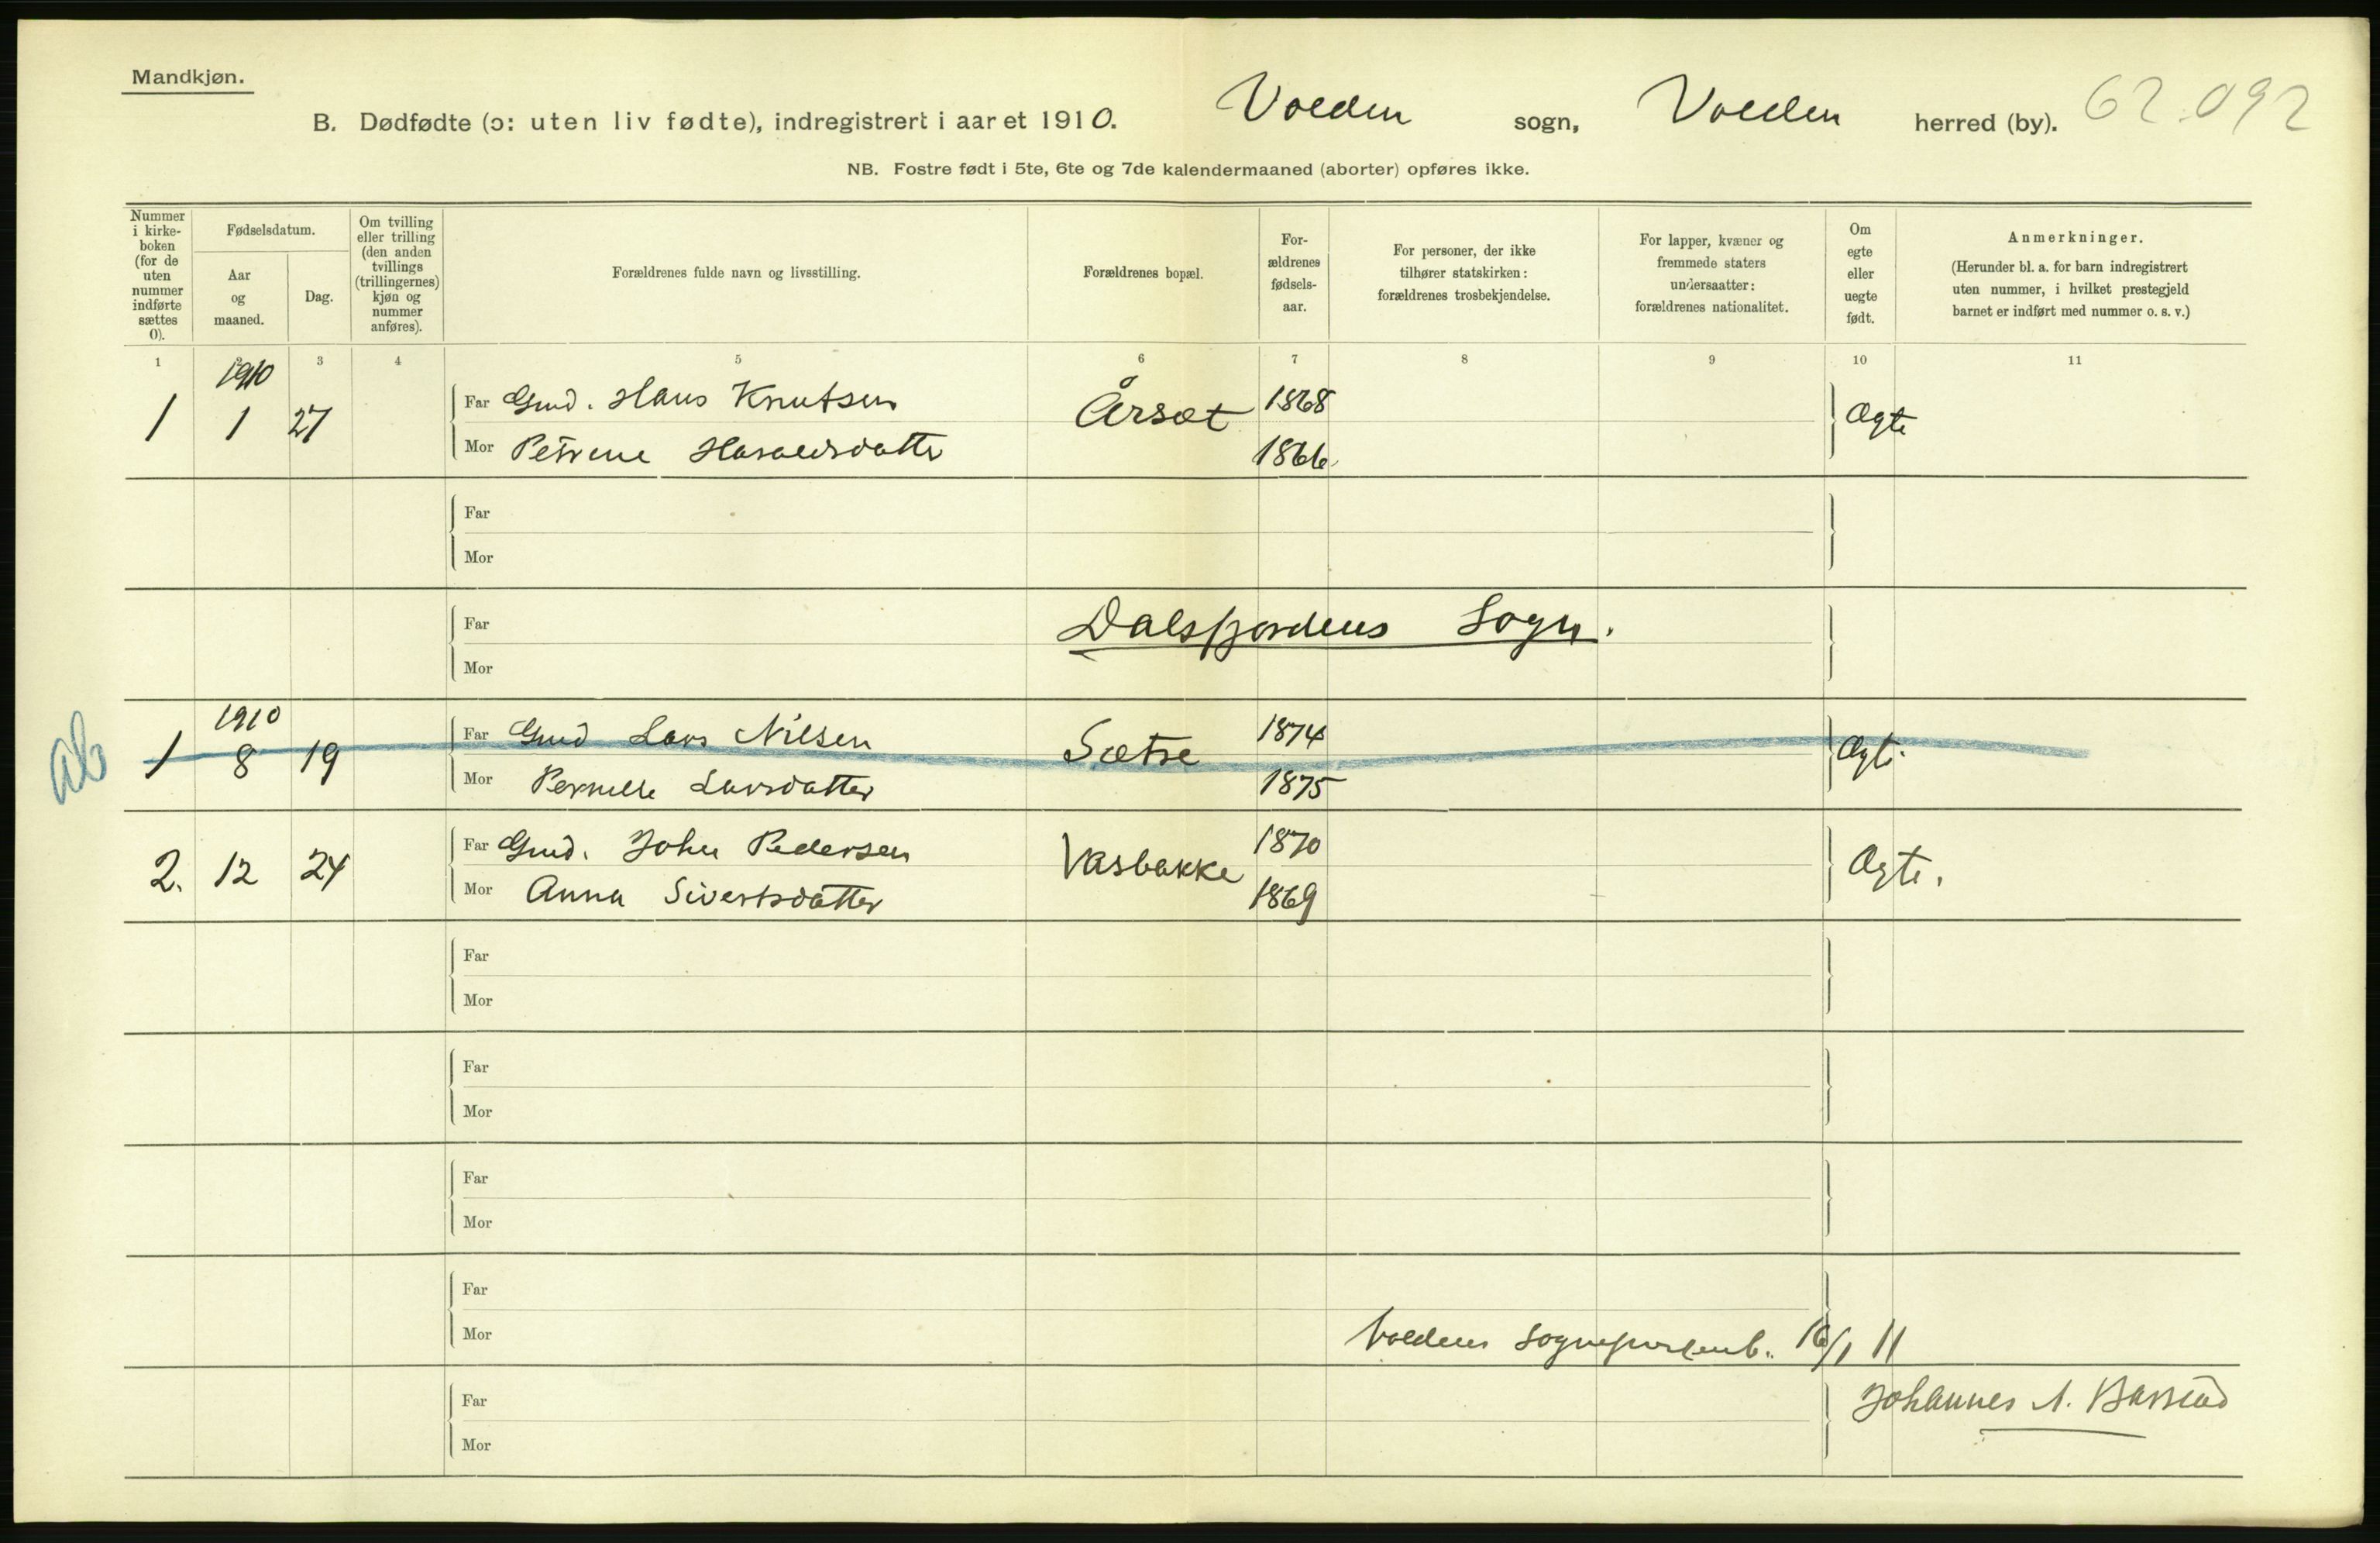 Mandkjøn.
B. Dødfødte (ɔ: uten liv fødte), indregistrert i aaret 1910. Volden sogn, Volden herred (by). 62.092
NB. Fostre født i 5te, 6te og 7de kalendermaaned (aborter) opføres ikke.
Nummer i kirkeboken (for de uten nummer indførte sættes 0).
Fødselsdatum.
Aar og maaned.
Dag.
Om tvilling eller trilling (den anden tvillings (trillingernes) kjøn og nummer anføres).
Forældrenes fulde navn og livsstilling.
Forældrenes bopæl.
For-ældrenes fødsels-aar.
For personer, der ikke tilhører statskirken: forældrenes trosbekjendelse.
For lapper, kvæner og fremmede staters undersaatter: forældrenes nationalitet.
Om egte eller uegte født.
Anmerkninger.
(Herunder bl. a. for barn indregistrert uten nummer, i hvilket prestegjeld barnet er indført med nummer o. s. v.)
1 2 3 4 5 6 7 8 9 10 11
1910
1 1 27 Far Gmd. Hans Knutsen Årsæt 1868 Ægte
Mor Petrine Haraldsdatter 1866
Far
Mor
Far Dalsfjordens Sogn.
Mor
1910
ab 1 8 19 Far Gmd Lars Nilsen Sætre 1874 Ægte
Mor Pernille Larsdatter 1875
2. 12 24 Far Gmd. John Pedersen Vasbakke 1870 Ægte.
Mor Anna Sivertsdatter 1869
Far
Mor
Far
Mor
Far
Mor
Far
Mor Voldens Sogneprestemb. 16/1 11
Far Johannes A. Barstad
Mor